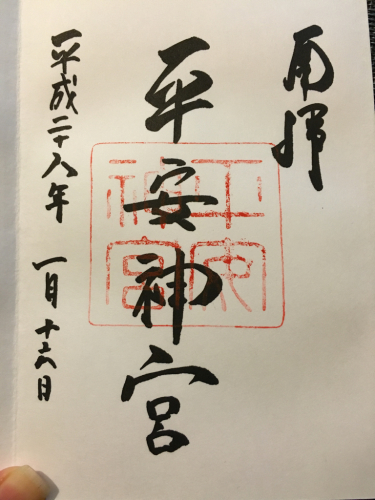 奉拝
平安神宮
平安神宮
平成二十八年 一月十六日